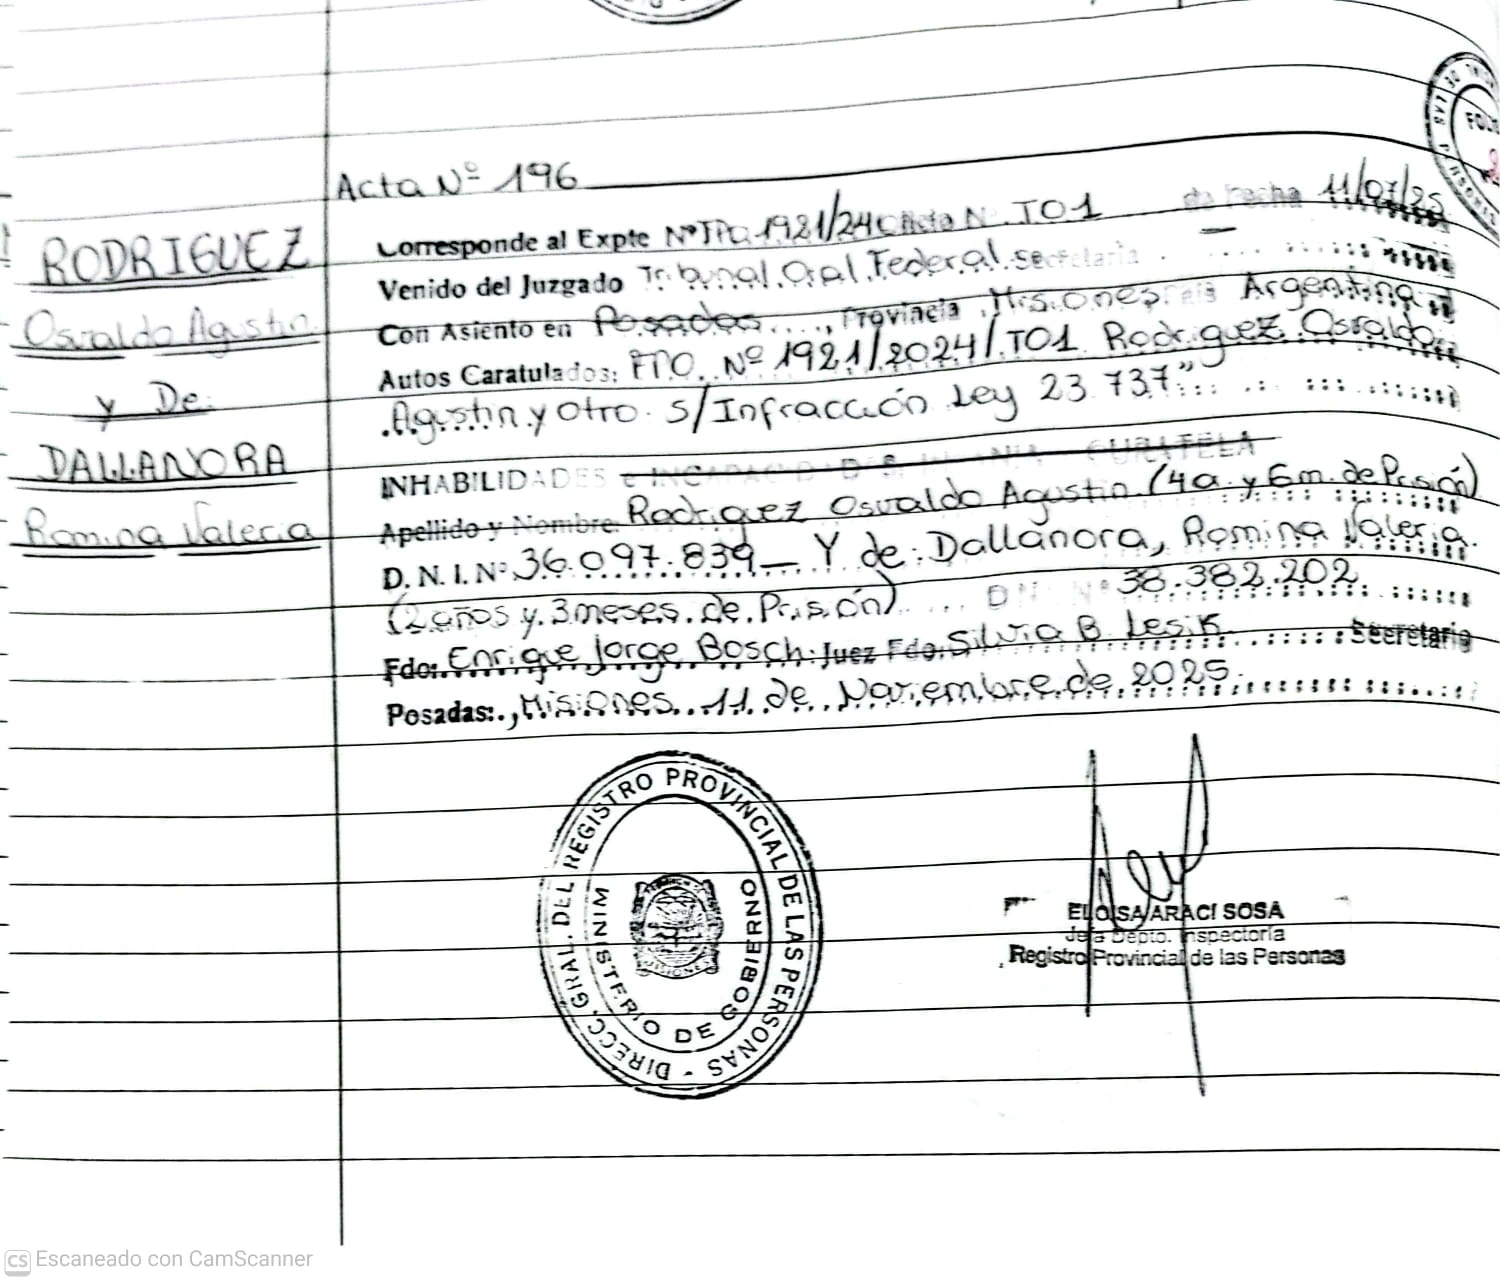 Acta Nº 196
RODRIGUEZ
Osvaldo Agustin
y De
DALLANORA
Romina Valeria
Corresponde al Expte Nº 1921/24 N TO1 de Fecha 11/07/25
Venido del Juzgado Tribunal Oral Federal secretaria
Con Asiento en Posadas, Provincia Misiones Argentina
Autos Caratulados: FPO. Nº 1921/2024/TO1 Rodriguez Osvaldo
Agustin y otro s/Infracción Ley 23.737"
INHABILIDADES e CURATELA
Apellido y Nombre: Rodriguez Osvaldo Agustin (4a. y 6m. de Prisión)
D. N. I. Nº 36.097.839 Y de: Dallanora, Romina Valeria.
(2 años y 3 meses de Prisión) DNI Nº 38.382.202
Fdo: Enrique Jorge Bosch. Juez Fdo: Silvia B. Lesik Secretario
Posadas:, Misiones 11 de Noviembre de 2025
DIRECC. GRAL. DEL REGISTRO PROVINCIAL DE LAS PERSONAS -
MINISTERIO DE GOBIERNO
MISIONES
ELOISA ARACI SOSA
Jefa Depto. Inspectoría
Registro Provincial de las Personas
DE LAS PERSONAS
FOLIO
CS Escaneado con CamScanner